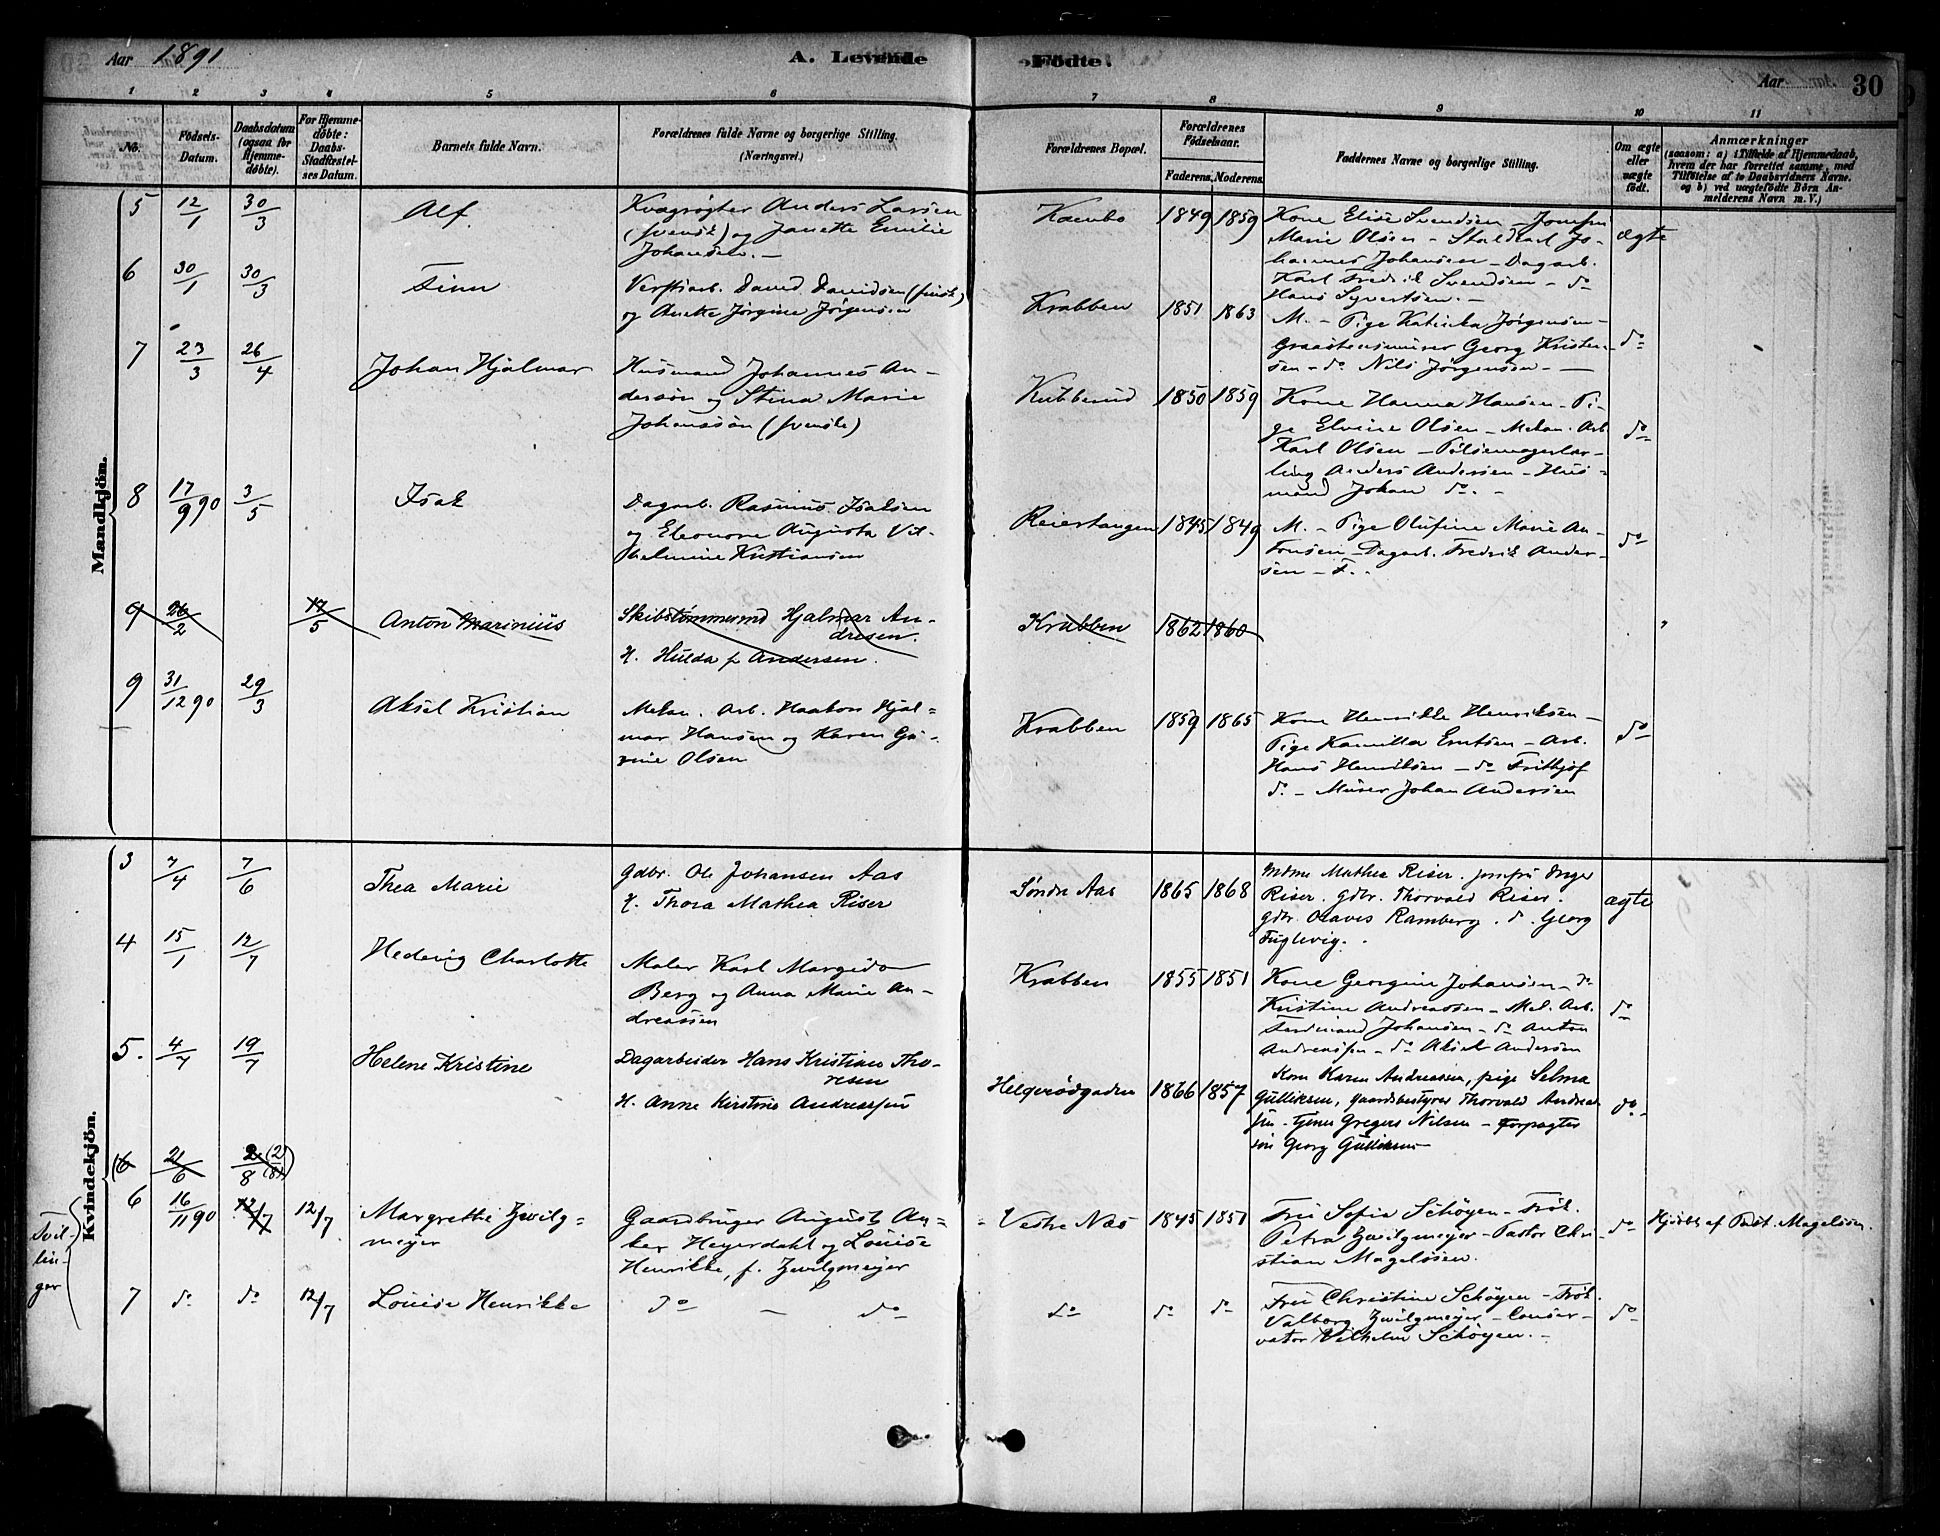 Aar 1891
A. Levende
Fødte.
Aar
30
1 2 3 4 5 6 7 8 9 10 11
No.
Fødsels-
Datum.
Daabsdatum
(ogsaa for
Hjemme-
døbte).
For Hjemme-
døbte:
Daabs-
Stadfæstel-
ses Datum.
Barnets fulde Navn.
Forældrenes fulde Navne og borgerlige Stilling.
(Næringsvei.)
Forældrenes Bopæl.
Forældrenes
Fødselsaar.
Faderens. Moderens.
Faddernes Navne og borgerlige Stilling.
Om ægte
eller
uægte
født.
Anmærkninger
(saasom: a) i Tilfælde af Hjemmedaab,
hvem der har forrettet samme, med
Tilføielse af to Daabsvidners Navne,
og b) ved uægtefødte Børn An-
melderens Navn m. V.)
Mandkjön.
5 12/1 30/3 Alf.
Kvægrøgter Anders Larsen
(svensk) og Janette Emilie
Johansen. —
Kambo 1849 1859
Kone Elise Svendsen – Jomfru
Marie Olsen – Staldkarl Jo-
hannes Johansen – Dagarb.
Karl Fredrik Svendsen – do
Hans Syvertsen. –
ægte
6 30/1 30/3 Finn
Verftsarb. David Davidsen (svensk)
og Anette Jørgine Jørgensen
Krabben 1851 1863
M. – Pige Katinka Jørgensen –
Graastensmurer Georg Kristen-
sen – do Nils Jørgensen. —
do
7 23/3 26/4 Johan Hjalmar
Husmand Johannes An-
dersøn og Stina Marie
Johansson (svensk)
Kubberud 1850 1859
Kone Hanna Hansen – Pi-
ge Elvine Olsen – Mekan. Arb
Karl Olsen – Pølsemagerlær-
ling Anders Andersen – Hus-
mand Johan do. –
do
8 17/9 90 3/5 Isak
Dagarb. Rasmus Isaksen
og Eleonore Augusta Vil-
helmine Kristiansen
Reiertangen 1845 1849
M. – Pige Olufine Marie An-
tonsen – Dagarb. Fredrik Ander-
sen – F. .
do
9 26/2 17/5 Anton Marinius
Skibstømmermd Hjalmar An-
dresen.
H. Hulda f. Andersen.
Krabben 1862 1860
9 31/12 90 29/3 Aksel Kristian
Mekan. Arb. Haakon Hjal-
mar Hansen og Karen Gu-
rine Olsen
Krabben 1859 1865
Kone Henrikke Henriksen –
Pige Kamilla Erntsen – Arb.
Hans Henriksen – do Frithjof
do. – Murer Johan Andersen
do
Kvindekjön.
3 7/4 7/6 Thea Marie
Gdbr. Ole Johansen Aas
H. Thora Mathea Riser
Søndre Aas 1865 1868
Mdme Mathea Riser. jomfru Inger
Riser. gdbr. Thorvald Riser.
gdbr. Olaves Ramberg. do. Georg
Fuglevig. .
ægte
4 15/1 12/7 Hedevig Charlotte
Maler Karl Margido
Berg og Anna Marie An-
dreassen
Krabben 1855 1851
Kone Georgine Johansen – do
Kristine Andreassen – Mek. Arb.
Ferdinand Johansen – do Anton
Andreassen – do Aksel Andersen
do
5. 4/7 19/7 Helene Kristine
Dagarbeider Hans Kristian Tho-
resen
H. Anne Kirstine Andreassen
Helgerødgaden 1866 1857
Kone Karen Andreassen, pige Selma
Gulliksen, gaardsbestyrer Thorvald Andreas-
sen – tjener Gregers Nilsen – Forpagter
søn Georg Gulliksen –
do.
(6 21/6 2/8 (2/8)
Tvil-
lin-
ger
6 16/11 90 12/7 12/7 Margrethe Zwilg-
meyer
Gaardbruger August An-
ker Heyerdahl og Louise
Henrikke, f. Zwilgmeyer
Vestre Næs 1845 1851
Fru Sofie Schøyen – Frøk.
Petra Zwilgmeyer – Pastor Chri-
stian Magelssen.
do
Hjdøbt af Past. Magelssen.
7 do do 12/7 Louise Henrikke
do — do
do do do
Fru Christine Schøyen – Frøk.
Valborg Zwilgmeyer – Conser-
vator Vilhelm Schøyen. –
do